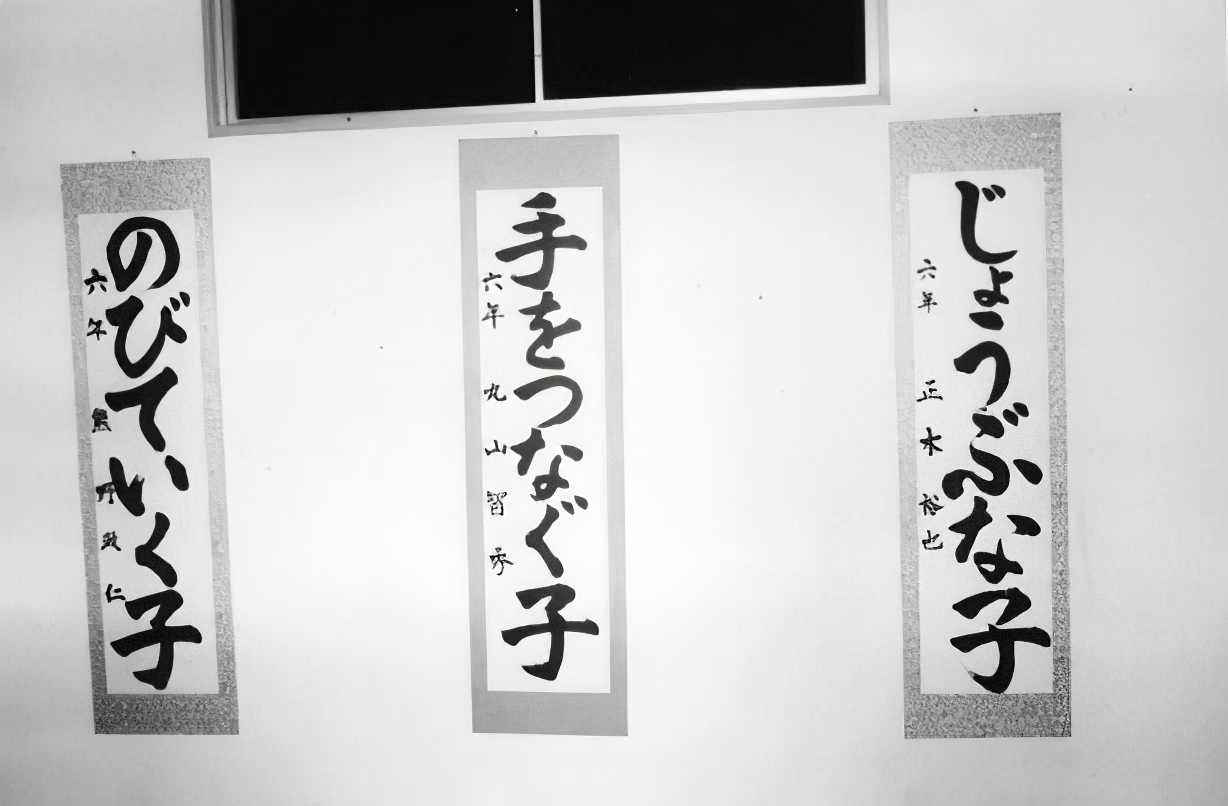 じょうぶな子
六年 正木 裕也
手をつなぐ子
六年 丸山智秀
のびていく子
六年
仁